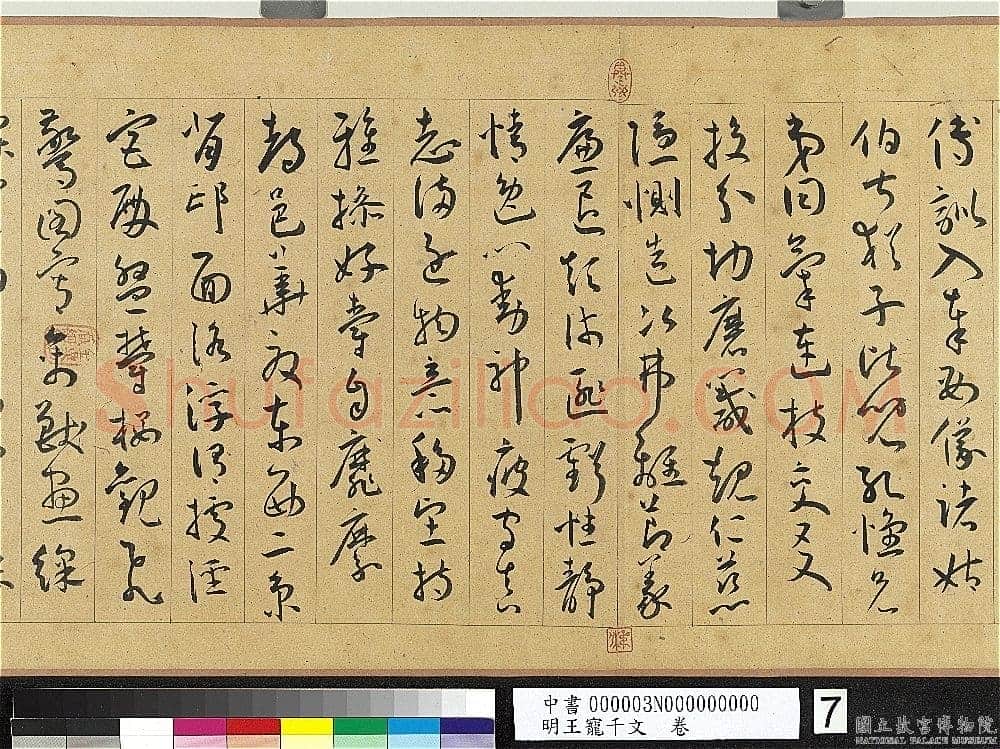 傅訓入奉母儀諸姑
伯叔猶子比兒孔懷兄
弟同氣連枝交友
投分切磨箴規仁慈
隱惻造次弗離節義
廉退顛沛匪虧性靜
情逸心動神疲守真
志滿逐物意移堅持
雅操好爵自靡縻
都邑華夏東西二京
背邙面洛浮渭據涇
宮殿盤鬱樓觀飛
驚圖寫禽獸畫綵
Shufaziliao.COM
中書000003N000000000
明王寵千文 卷
7
國立故宮博物院
NATIONAL PALACE MUSEUM